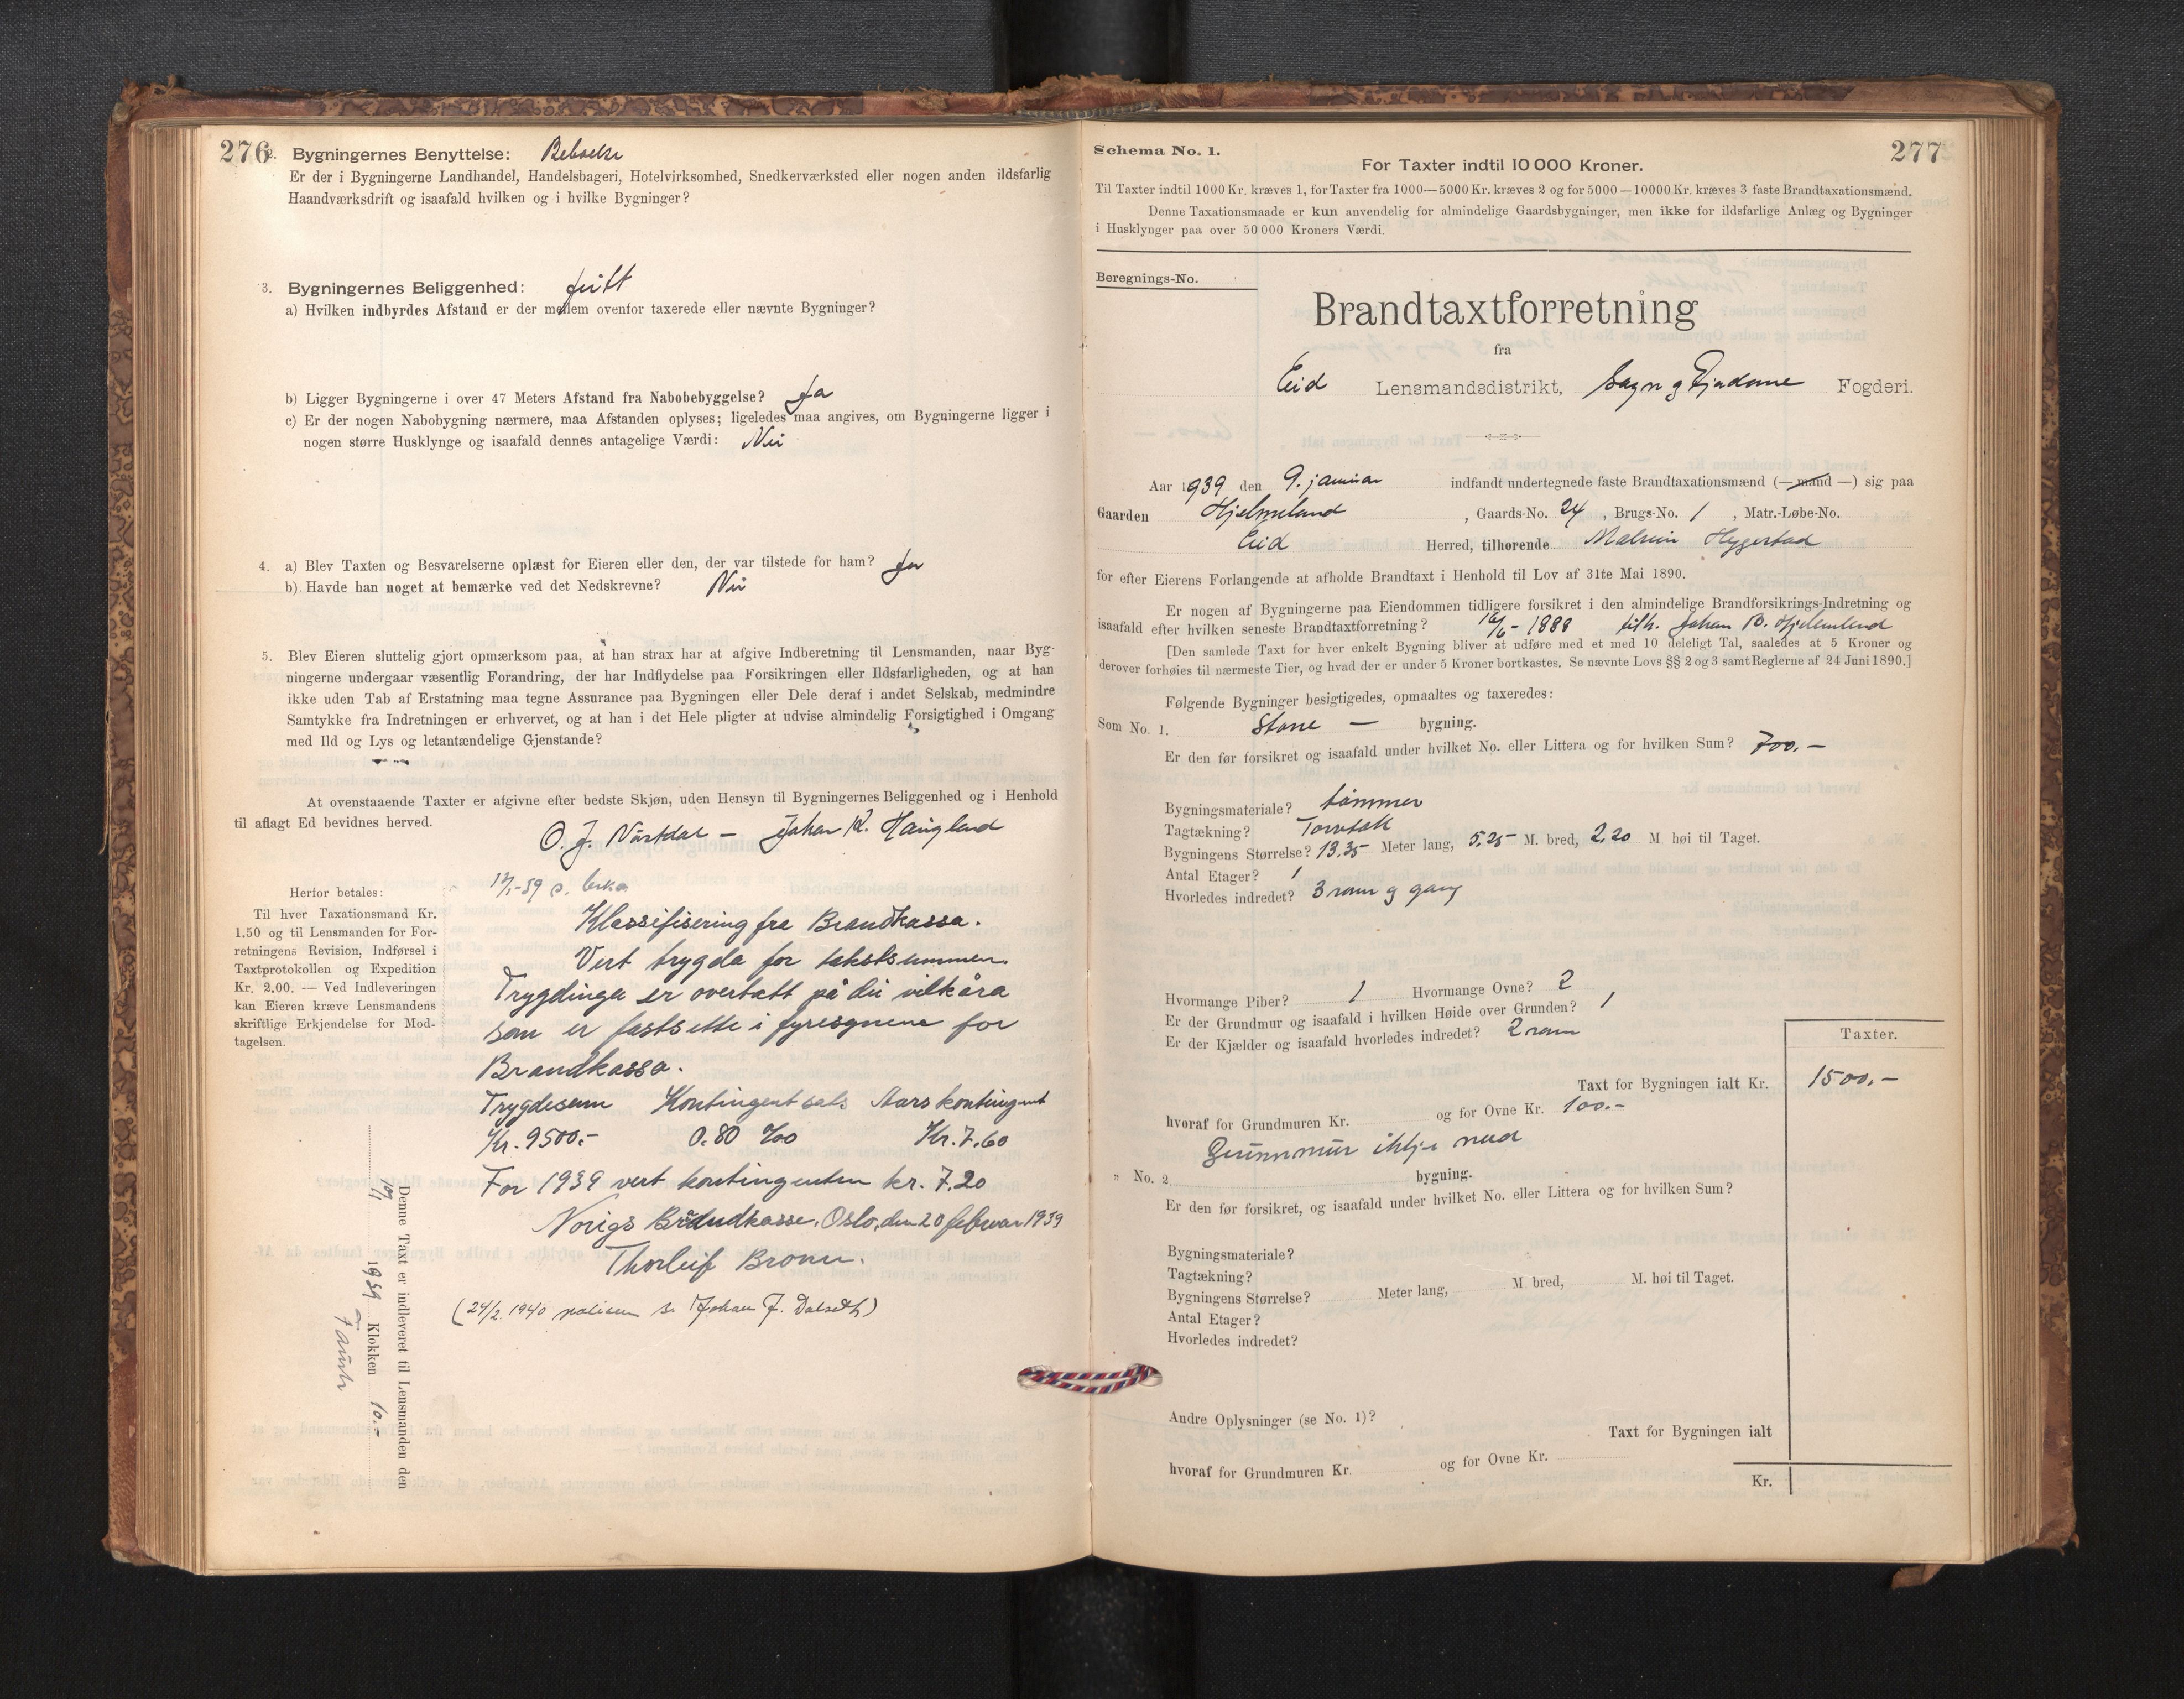 276
2. Bygningernes Benyttelse: Beboelse
Er der i Bygningerne Landhandel, Handelsbageri, Hotelvirksomhed, Snedkerværksted eller nogen anden ildsfarlig
Haandværksdrift og isaafald hvilken og i hvilke Bygninger?
3. Bygningernes Beliggenhed: fritt
a) Hvilken indbyrdes Afstand er der mellem ovenfor taxerede eller nævnte Bygninger?
b) Ligger Bygningerne i over 47 Meters Afstand fra Nabobebyggelse? Ja
c) Er der nogen Nabobygning nærmere, maa Afstanden oplyses; ligeledes maa angives, om Bygningerne ligger i
nogen større Husklynge og isaafald dennes antagelige Værdi: Nei
4. a) Blev Taxten og Besvarelserne oplæst for Eieren eller den, der var tilstede for ham? Ja
b) Havde han noget at bemærke ved det Nedskrevne? Nei
5. Blev Eieren sluttelig gjort opmærksom paa, at han strax har at afgive Indberetning til Lensmanden, naar Byg-
ningerne undergaar væsentlig Forandring, der har Indflydelse paa Forsikringen eller Ildsfarligheden, og at han
ikke uden Tab af Erstatning maa tegne Assurance paa Bygningen eller Dele deraf i andet Selskab, medmindre
Samtykke fra Indretningen er erhvervet, og at han i det Hele pligter at udvise almindelig Forsigtighed i Omgang
med Ild og Lys og letantændelige Gjenstande?
At ovenstaaende Taxter er afgivne efter bedste Skjøn, uden Hensyn til Bygningernes Beliggenhed og i Henhold
til aflagt Ed bevidnes herved.
O. J. Nårdal — Johan K. Haugland
Herfor betales:
Til hver Taxationsmand Kr.
1.50 og til Lensmanden for For-
retningens Revision, Indførsel i
Taxtprotokollen og Expedition
Kr. 2.00. — Ved Indleveringen
kan Eieren kræve Lensmandens
skriftlige Erkjendelse for Mod-
tagelsen.
Klassifisering fra Brandkassa.
Vert trygda for takstsummen
Trygdinga er overtatt på dei vilkåra
som er fastsette i fyresegnene for
Brandkassa.
Trygdesum Kontingentsats Aarskontingent
Kr. 9500.- 0.80 ‰ Kr. 7.60
For 1939 vert kontingenten kr. 7.20
Norigs Brandkasse, Oslo, den 20 februar 1939
Thorleif Bronn.
(24/2 1940 polisen Johan J. Dalseth)
Denne Taxt er indleveret til Lensmanden den
10/1 1939 Klokken 10.-
277
Schema No. 1.
For Taxter indtil 10 000 Kroner.
Til Taxter indtil 1000 Kr. kræves 1, for Taxter fra 1000—5000 Kr. kræves 2 og for 5000—10000 Kr. kræves 3 faste Brandtaxationsmænd.
Denne Taxationsmaade er kun anvendelig for almindelige Gaardsbygninger, men ikke for ildsfarlige Anlæg og Bygninger
i Husklynger paa over 50 000 Kroners Værdi.
Beregnings-No.
Brandtaxtforretning
fra
Eid Lensmandsdistrikt, Sogn og Fjordane Fogderi.
Aar 1939 den 9. januar indfandt undertegnede faste Brandtaxationsmænd (—mand —) sig paa
Gaarden Hjelmeland, Gaards-No. 24, Brugs-No. 1, Matr.-Løbe-No.
Eid Herred, tilhørende Malvin Hygerstad
for efter Eierens Forlangende at afholde Brandtaxt i Henhold til Lov af 31te Mai 1890.
Er nogen af Bygningerne paa Eiendommen tidligere forsikret i den almindelige Brandforsikrings-Indretning og
isaafald efter hvilken seneste Brandtaxtforretning? 16/6 - 1888 tilh. Johan B. Hjelmeland
[Den samlede Taxt for hver enkelt Bygning bliver at udføre med et med 10 deleligt Tal, saaledes at 5 Kroner og
derover forhøies til nærmeste Tier, og hvad der er under 5 Kroner bortkastes. Se nævnte Lovs §§ 2 og 3 samt Reglerne af 24 Juni 1890.]
Følgende Bygninger besigtigedes, opmaaltes og taxeredes:
Som No. 1. Stove — bygning.
Er den før forsikret og isaafald under hvilket No. eller Littera og for hvilken Sum? 700.—
Bygningsmateriale? tømmer
Tagtækning? Torvtak
Bygningens Størrelse? 13.35 Meter lang, 5.25 M. bred, 2.20 M. høi til Taget.
Antal Etager? 1
Hvorledes indredet? 3 rom og gang
Hvormange Piber? 1 Hvormange Ovne? 2
Er der Grundmur og isaafald i hvilken Høide over Grunden? 1
Er der Kjælder og isaafald hvorledes indredet? 2 rom
Taxter.
Taxt for Bygningen ialt Kr. 1500.—
hvoraf for Grundmuren Kr. og for Ovne Kr. 100.—
Grunnmur ikkje med
" No. 2. bygning.
Er den før forsikret, og isaafald under hvilket No. eller Littera og for hvilken Sum?
Bygningsmateriale?
Tagtækning?
Bygningens Størrelse? Meter lang, M. bred, M. høi til Taget.
Antal Etager?
Hvorledes indredet?
Andre Oplysninger (se No. 1)?
Taxt for Bygningen ialt
hvoraf for Grundmuren Kr. og for Ovne Kr.
Kr.